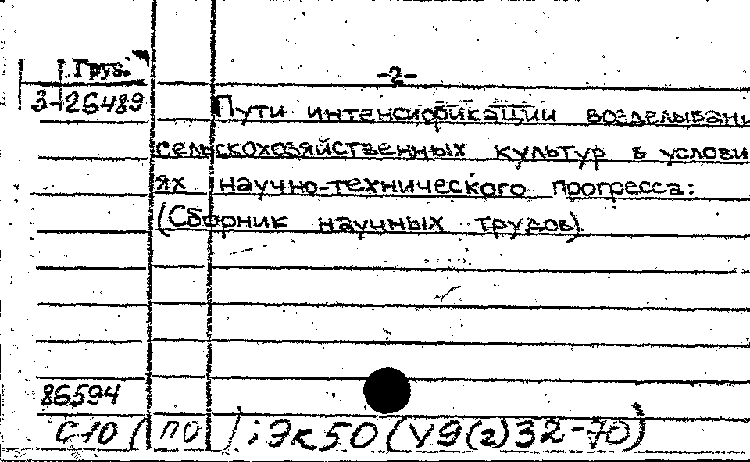 Груз.
-2-
3-26489
Пути интенсификации возделывани
сельскохозяйственных культур в услови
ях научно-технического прогресса:
(Сборник научных трудов).
86594
С10 (ПО); Эк50(У9(2)32-70)